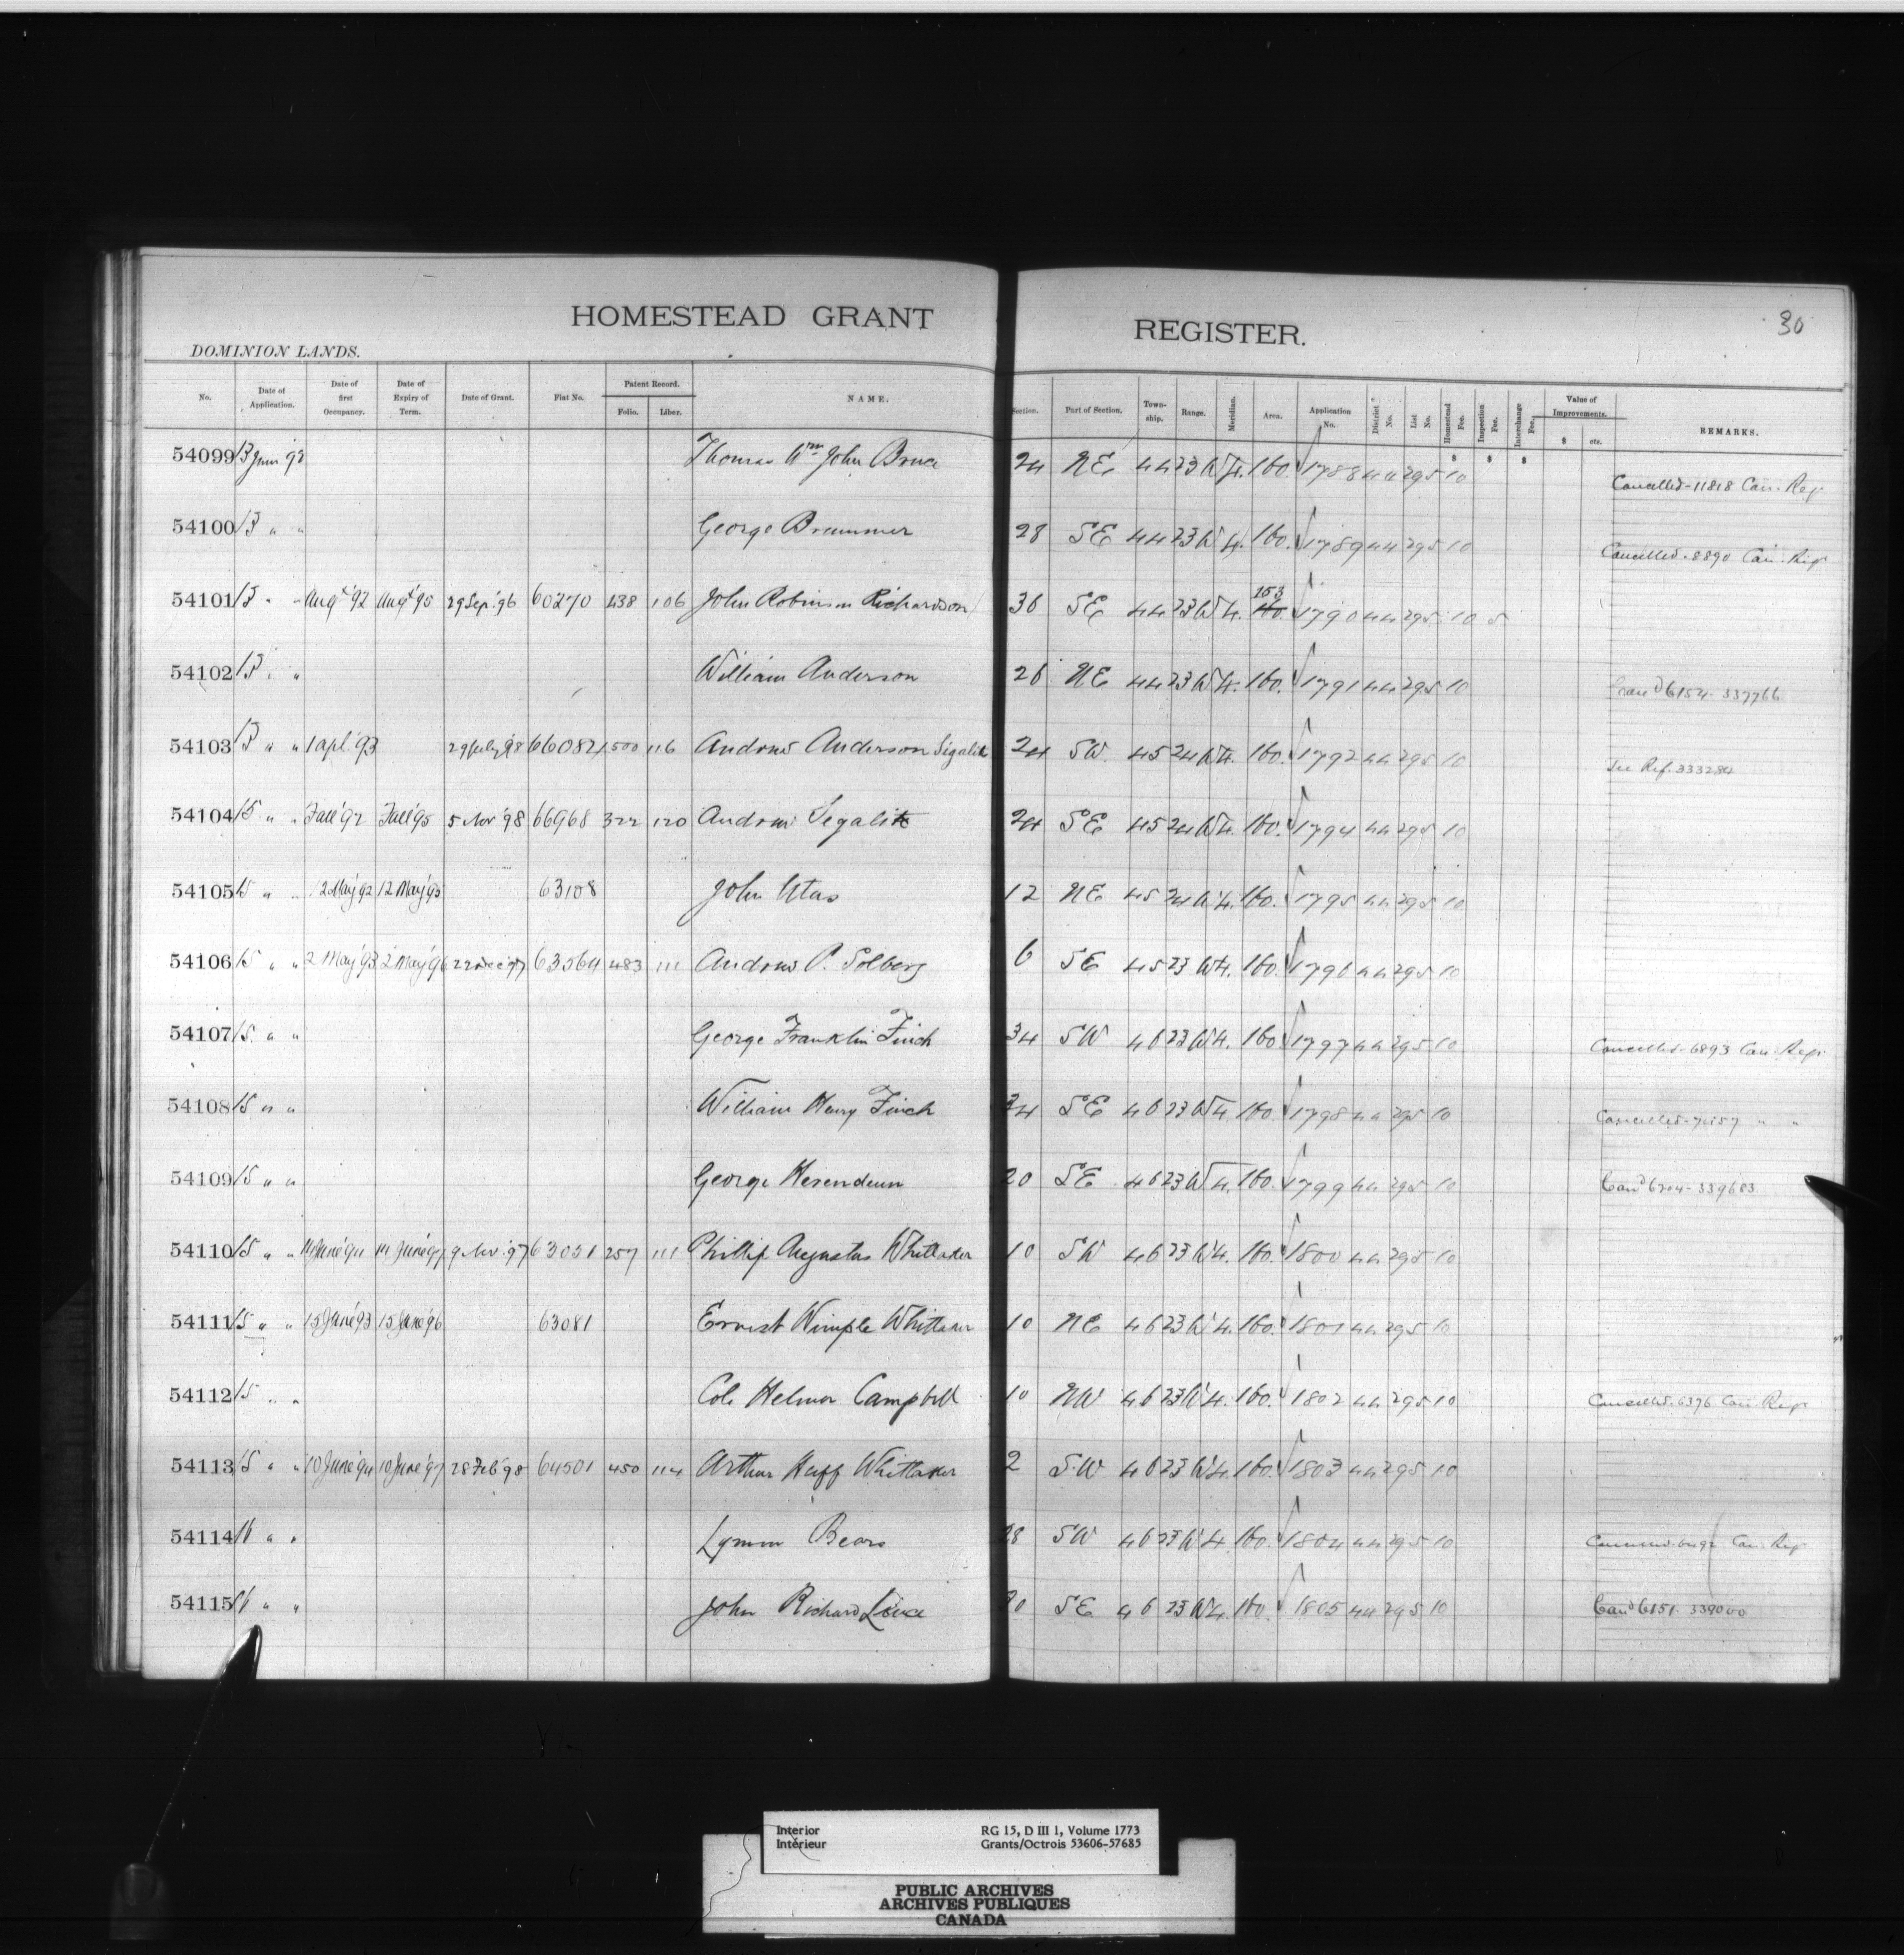 HOMESTEAD GRANT REGISTER.
30
DOMINION LANDS.
No. Date of Application. Date of first Occupancy. Date of Expiry of Term. Date of Grant. Fiat No. Patent Record. Folio. Liber. NAME. Section. Part of Section. Township. Range. Meridian. Area. Application No. District No. List No. Homestead Fee. Inspection Fee. Interchange Fee. Value of Improvements. $ cts. REMARKS.
$ $ $
54099 13 June 92 Thomas Wm John Bruce 24 NE 44 23 W4. 160. 1788 44 295 10 Cancelled-11818 Can. Reg.
54100 13 " " George Brummer 28 SE 44 23 W4. 160. 1789 44 295 10 Cancelled-8890 Can. Reg.
54101 13 " " Augt '92 Augt '95 29 Sep. '96 60270 438 106 John Robinson Richardson 36 SE 44 23 W4. 153 160. 1790 44 295 10 5
54102 13 " " William Anderson 26 NE 44 23 W4. 160. 1791 44 295 10 Cand 6154-337766
54103 13 " " 1 apl. '93 29 July 98 66082 500 116 Andrew Anderson Sigalik 24 SW 45 24 W4. 160. 1792 44 295 10 See Ref. 333284
54104 15 " " Fall '92 Fall '95 5 Nov '98 66968 322 120 Andrew Segalik 24 SE 45 24 W4. 160. 1794 44 295 10
54105 15 " " 12 May '92 12 May '95 63108 John Utas 12 NE 45 24 W4. 160. 1795 44 295 10
54106 15 " " 2 May '93 2 May '96 22 Dec '97 63564 483 111 Andrew P. Solberg 6 SE 45 23 W4. 160. 1796 44 295 10
54107 15 " " George Franklin Finch 34 SW 46 23 W4. 160 1797 44 295 10 Cancelled-6893 Can. Reg.
54108 15 " " William Henry Finch 34 SE 46 23 W4. 160 1798 44 295 10 Cancelled " "
54109 15 " " George Hesendeun 20 SE 46 23 W4. 160. 1799 44 295 10 Cand 6204-339683
54110 15 " " 14 June '94 14 June '97 9 Nov. '97 63031 257 111 Phillip Augustus Whittaker 10 SW 46 23 W4. 160. 1800 44 295 10
54111 15 " " 15 June '93 15 June '96 63081 Ernest Wimple Whittaker 10 NE 46 23 W4. 160. 1801 44 295 10
54112 15 " " Cole Helmer Campbell 10 NW 46 23 W4. 160. 1802 44 295 10 Cancelled-6376 Can. Reg.
54113 15 " " 10 June '94 10 June '97 28 Feb '98 64501 450 114 Arthur Huff Whittaker 2 S.W 46 23 W4. 160. 1803 44 295 10
54114 16 " " Lyman Bears 28 SW 46 23 W4. 160. 1804 44 295 10 Cancelled Can. Reg.
54115 16 " " John Richard Luce 30 SE 46 23 W4. 160. 1805 44 295 10 Cand 6151-339000
Interior RG 15, D III 1, Volume 1773
Intérieur Grants/Octrois 53606-57685
PUBLIC ARCHIVES
ARCHIVES PUBLIQUES
CANADA